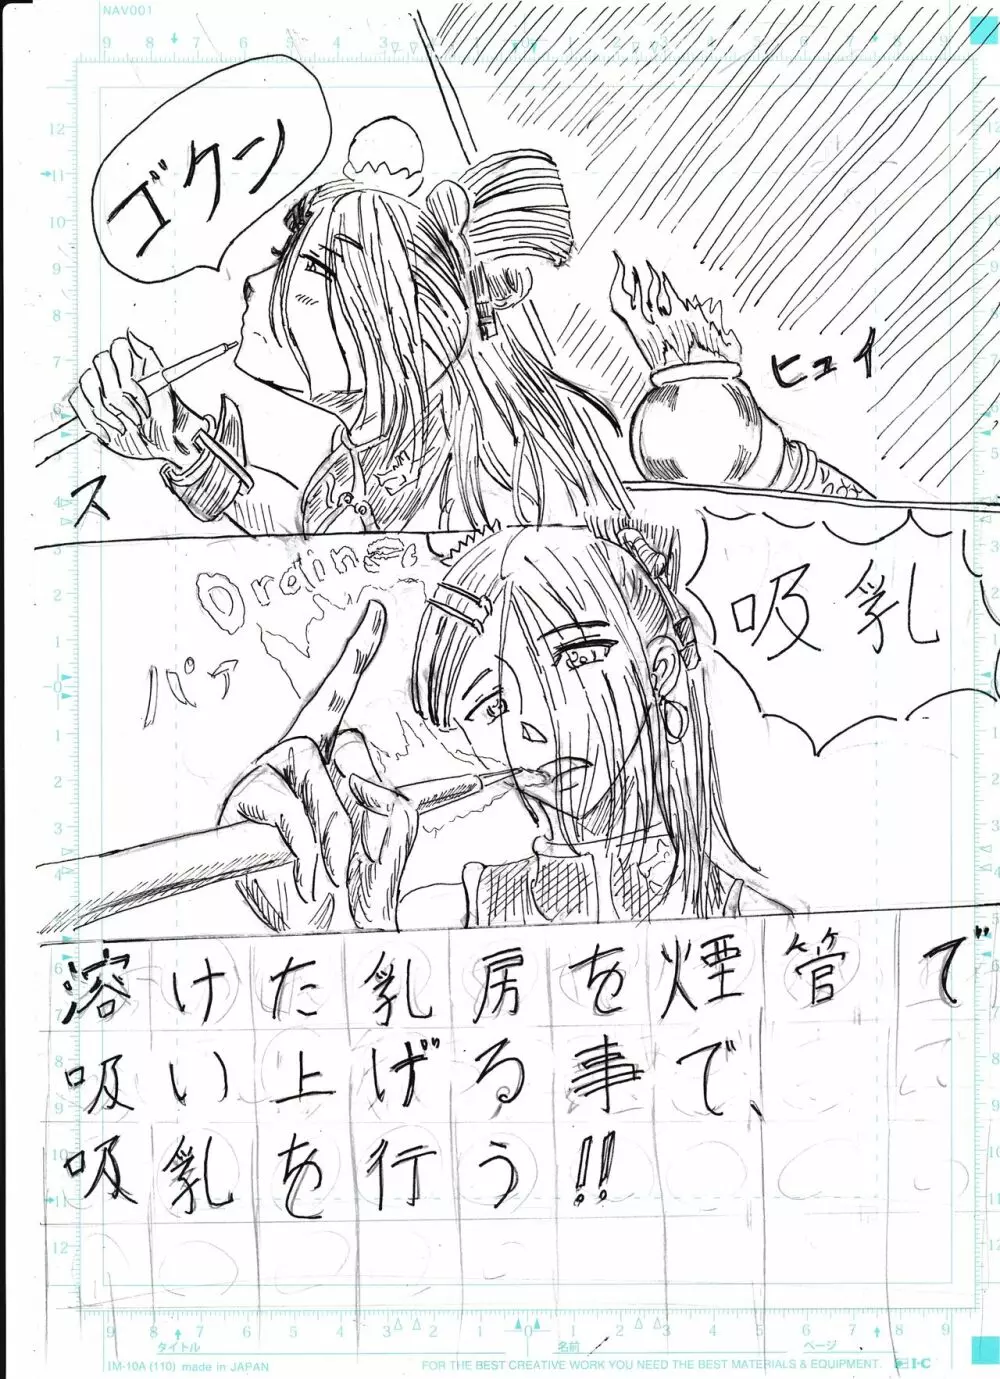 NAV001
ゴクン
ヒュイ
ス
Ordinge
パァ
吸乳
溶けた乳房を煙管で
吸い上げる事で、
吸乳を行う!!
タイトル
名前
ページ
IM-10A (110) made in JAPAN
FOR THE BEST CREATIVE WORK YOU NEED THE BEST MATERIALS & EQUIPMENT.
I·C